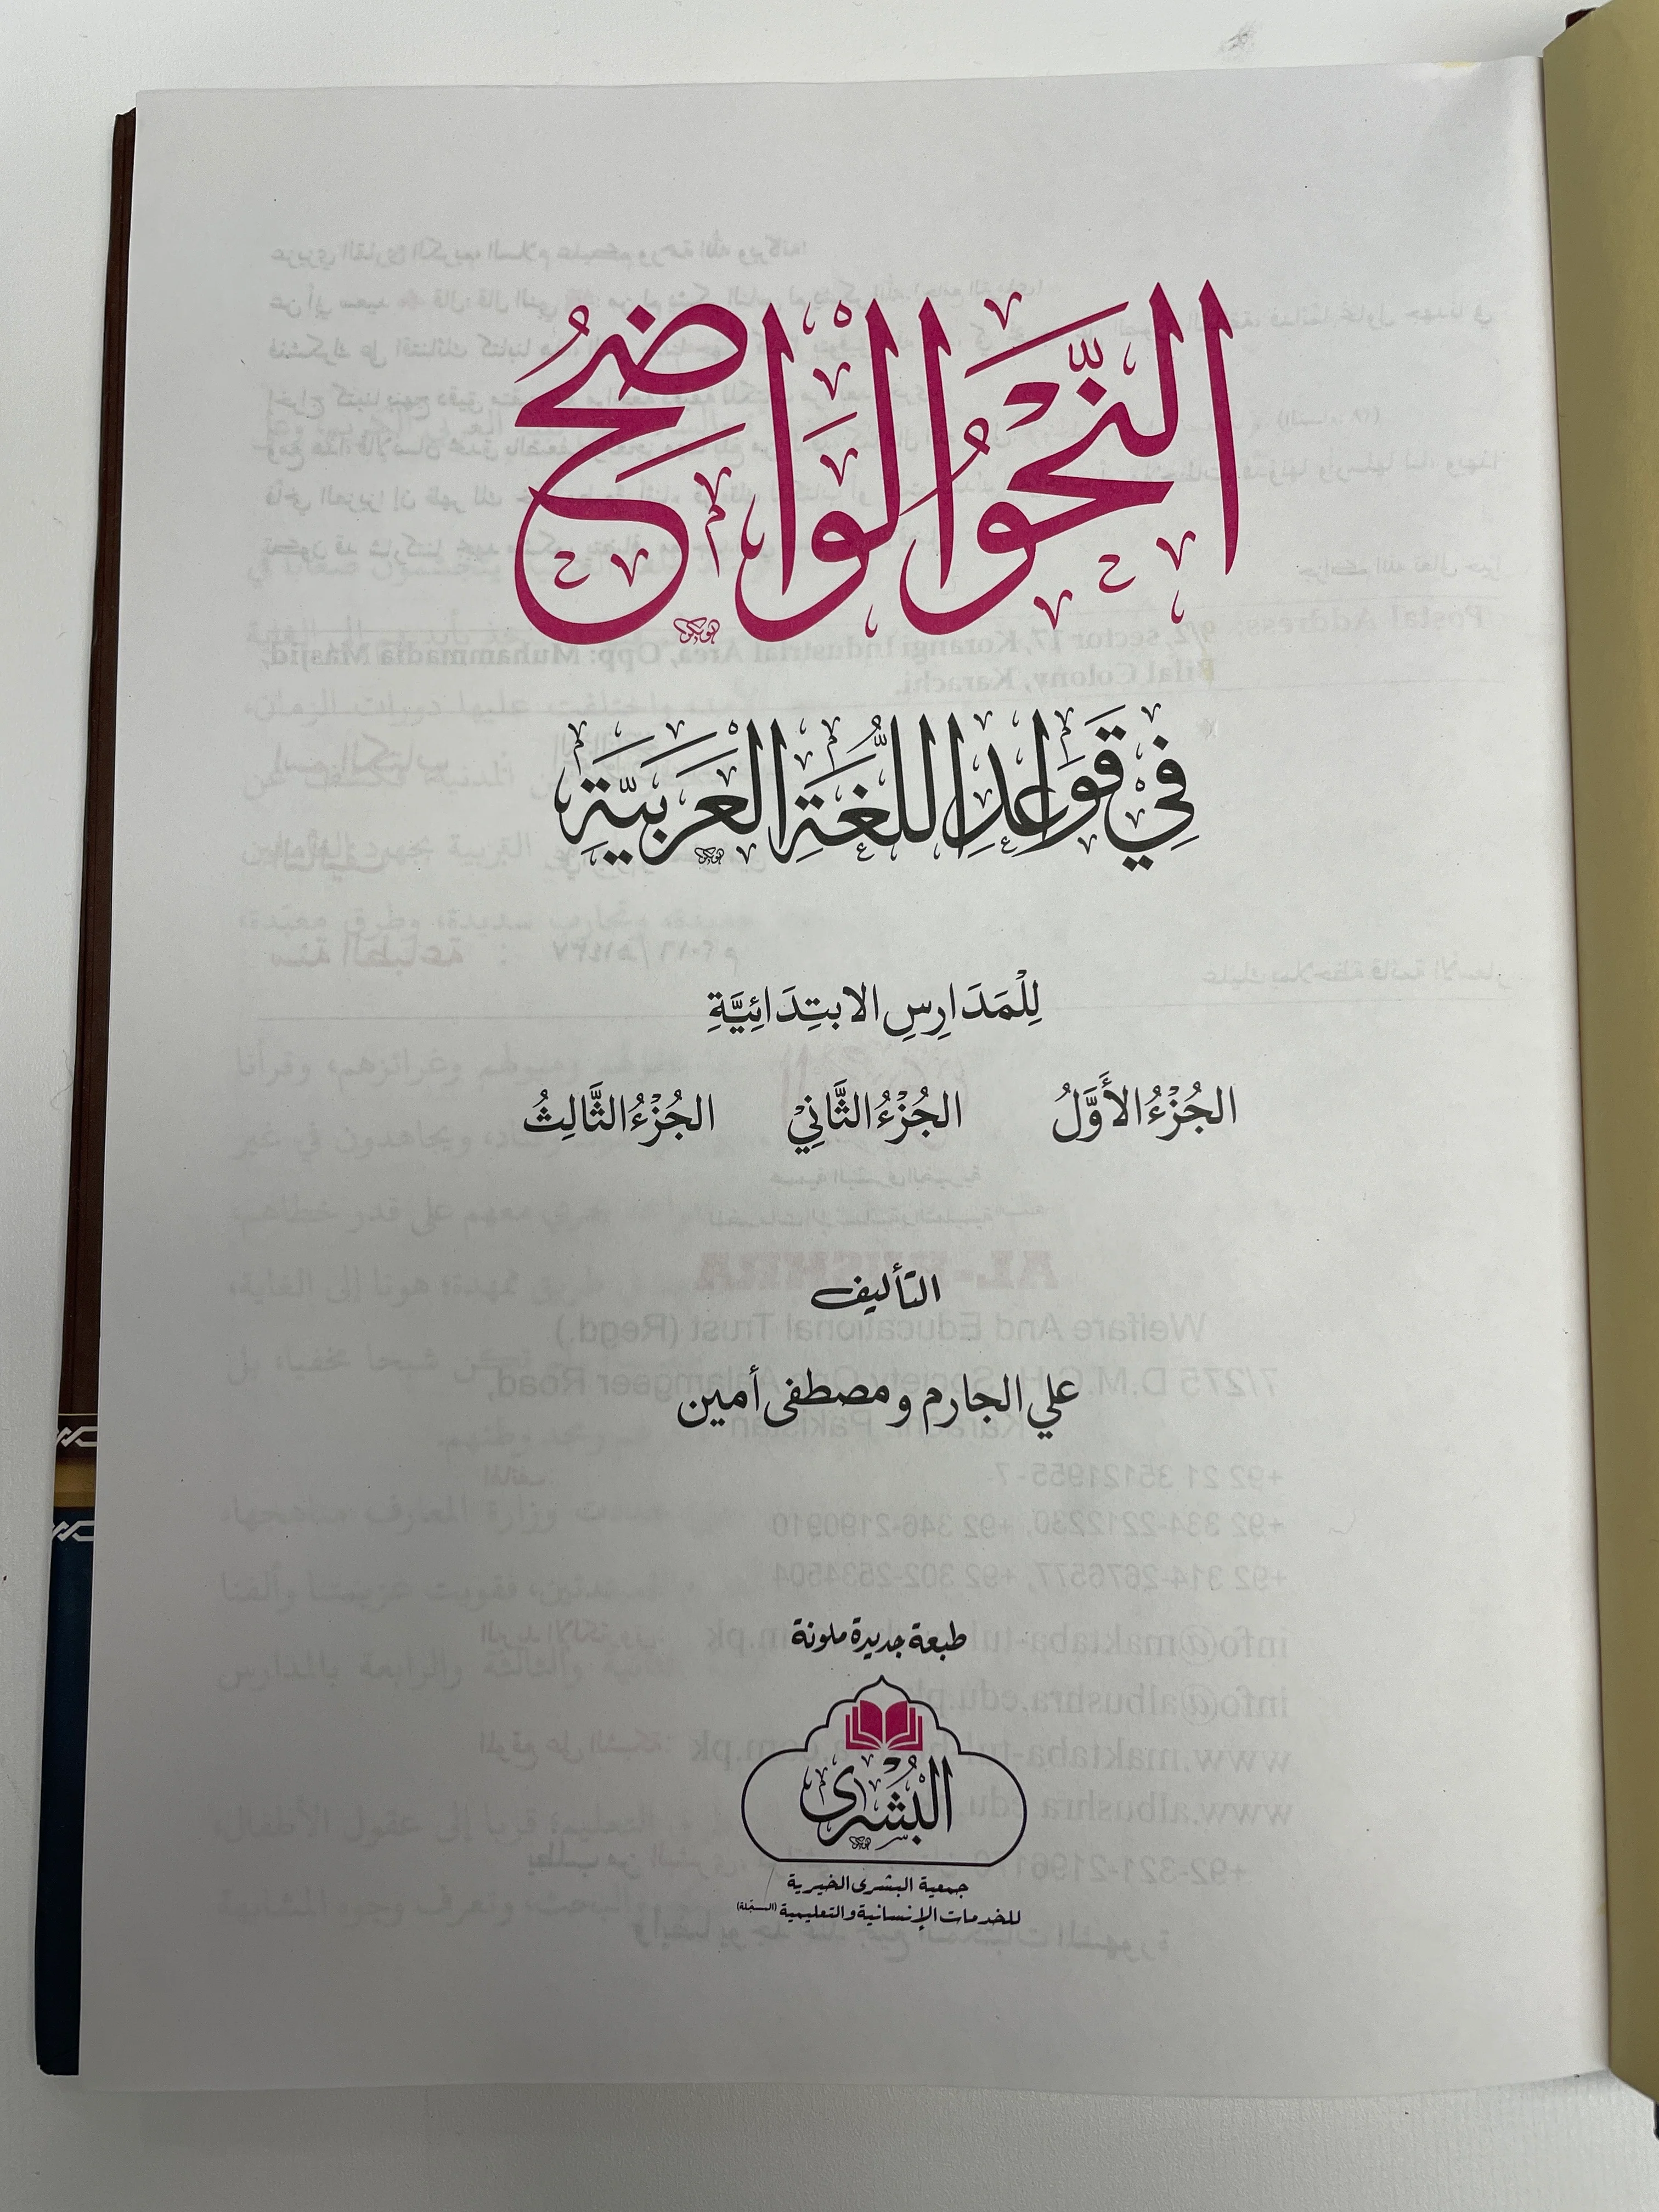 النَّحْوُ الْوَاضِحُ
فِيْ قَوَاعِدِ اللُّغَةِ الْعَرَبِيَّةِ
لِلْمَدَارِسِ الابتِدَائِيَّةِ
الجُزْءُ الأَوَّلُ الجُزْءُ الثَّانِيْ الجُزْءُ الثَّالِثُ
التأليف
علي الجارم ومصطفى أمين
طبعة جديدة ملونة
البُشْرى
جمعية البشرى الخيرية
للخدمات الإنسانية والتعليمية (المسجّلة)